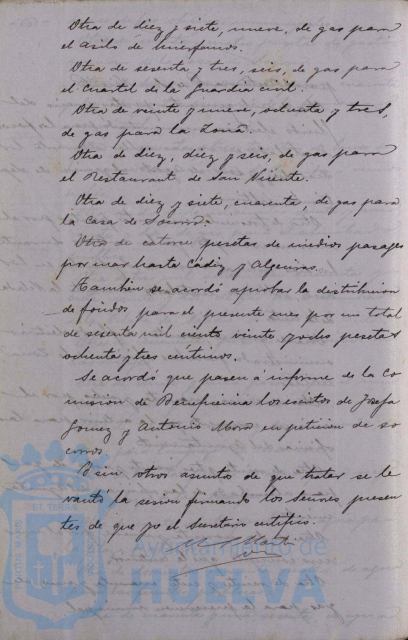 Otra de diez y siete, nueve, de gas para
el Asilo de Huerfanos.
Otra de sesenta y tres, seis, de gas para
el Cuartel de la Guardia civil.
Otra de veinte y nueve, ochenta y tres,
de gas para la Zona.
Otra de diez, diez y seis, de gas para
el Restaurant de San Vicente.
Otra de diez y siete, cuarenta, de gas para
la Casa de Socorro.
Otra de catorce pesetas de medios pasajes
por mar hasta Cádiz y Algeciras.
Tambien se acordó aprobar la distribucion
de fondos para el presente mes por un total
de sesenta mil ciento veinte y ocho pesetas
ochenta y tres centimos.
Se acordó que pasen á informe de la Co
mision de Beneficencia los escritos de Josefa
Gomez y Antonio Mora en peticion de so
corros.
Y sin otros asunto de que tratar se le
vantó la sesion firmando los Señores presen
tes de que yo el Secretario certifico.
Ayuntamiento de
HUELVA